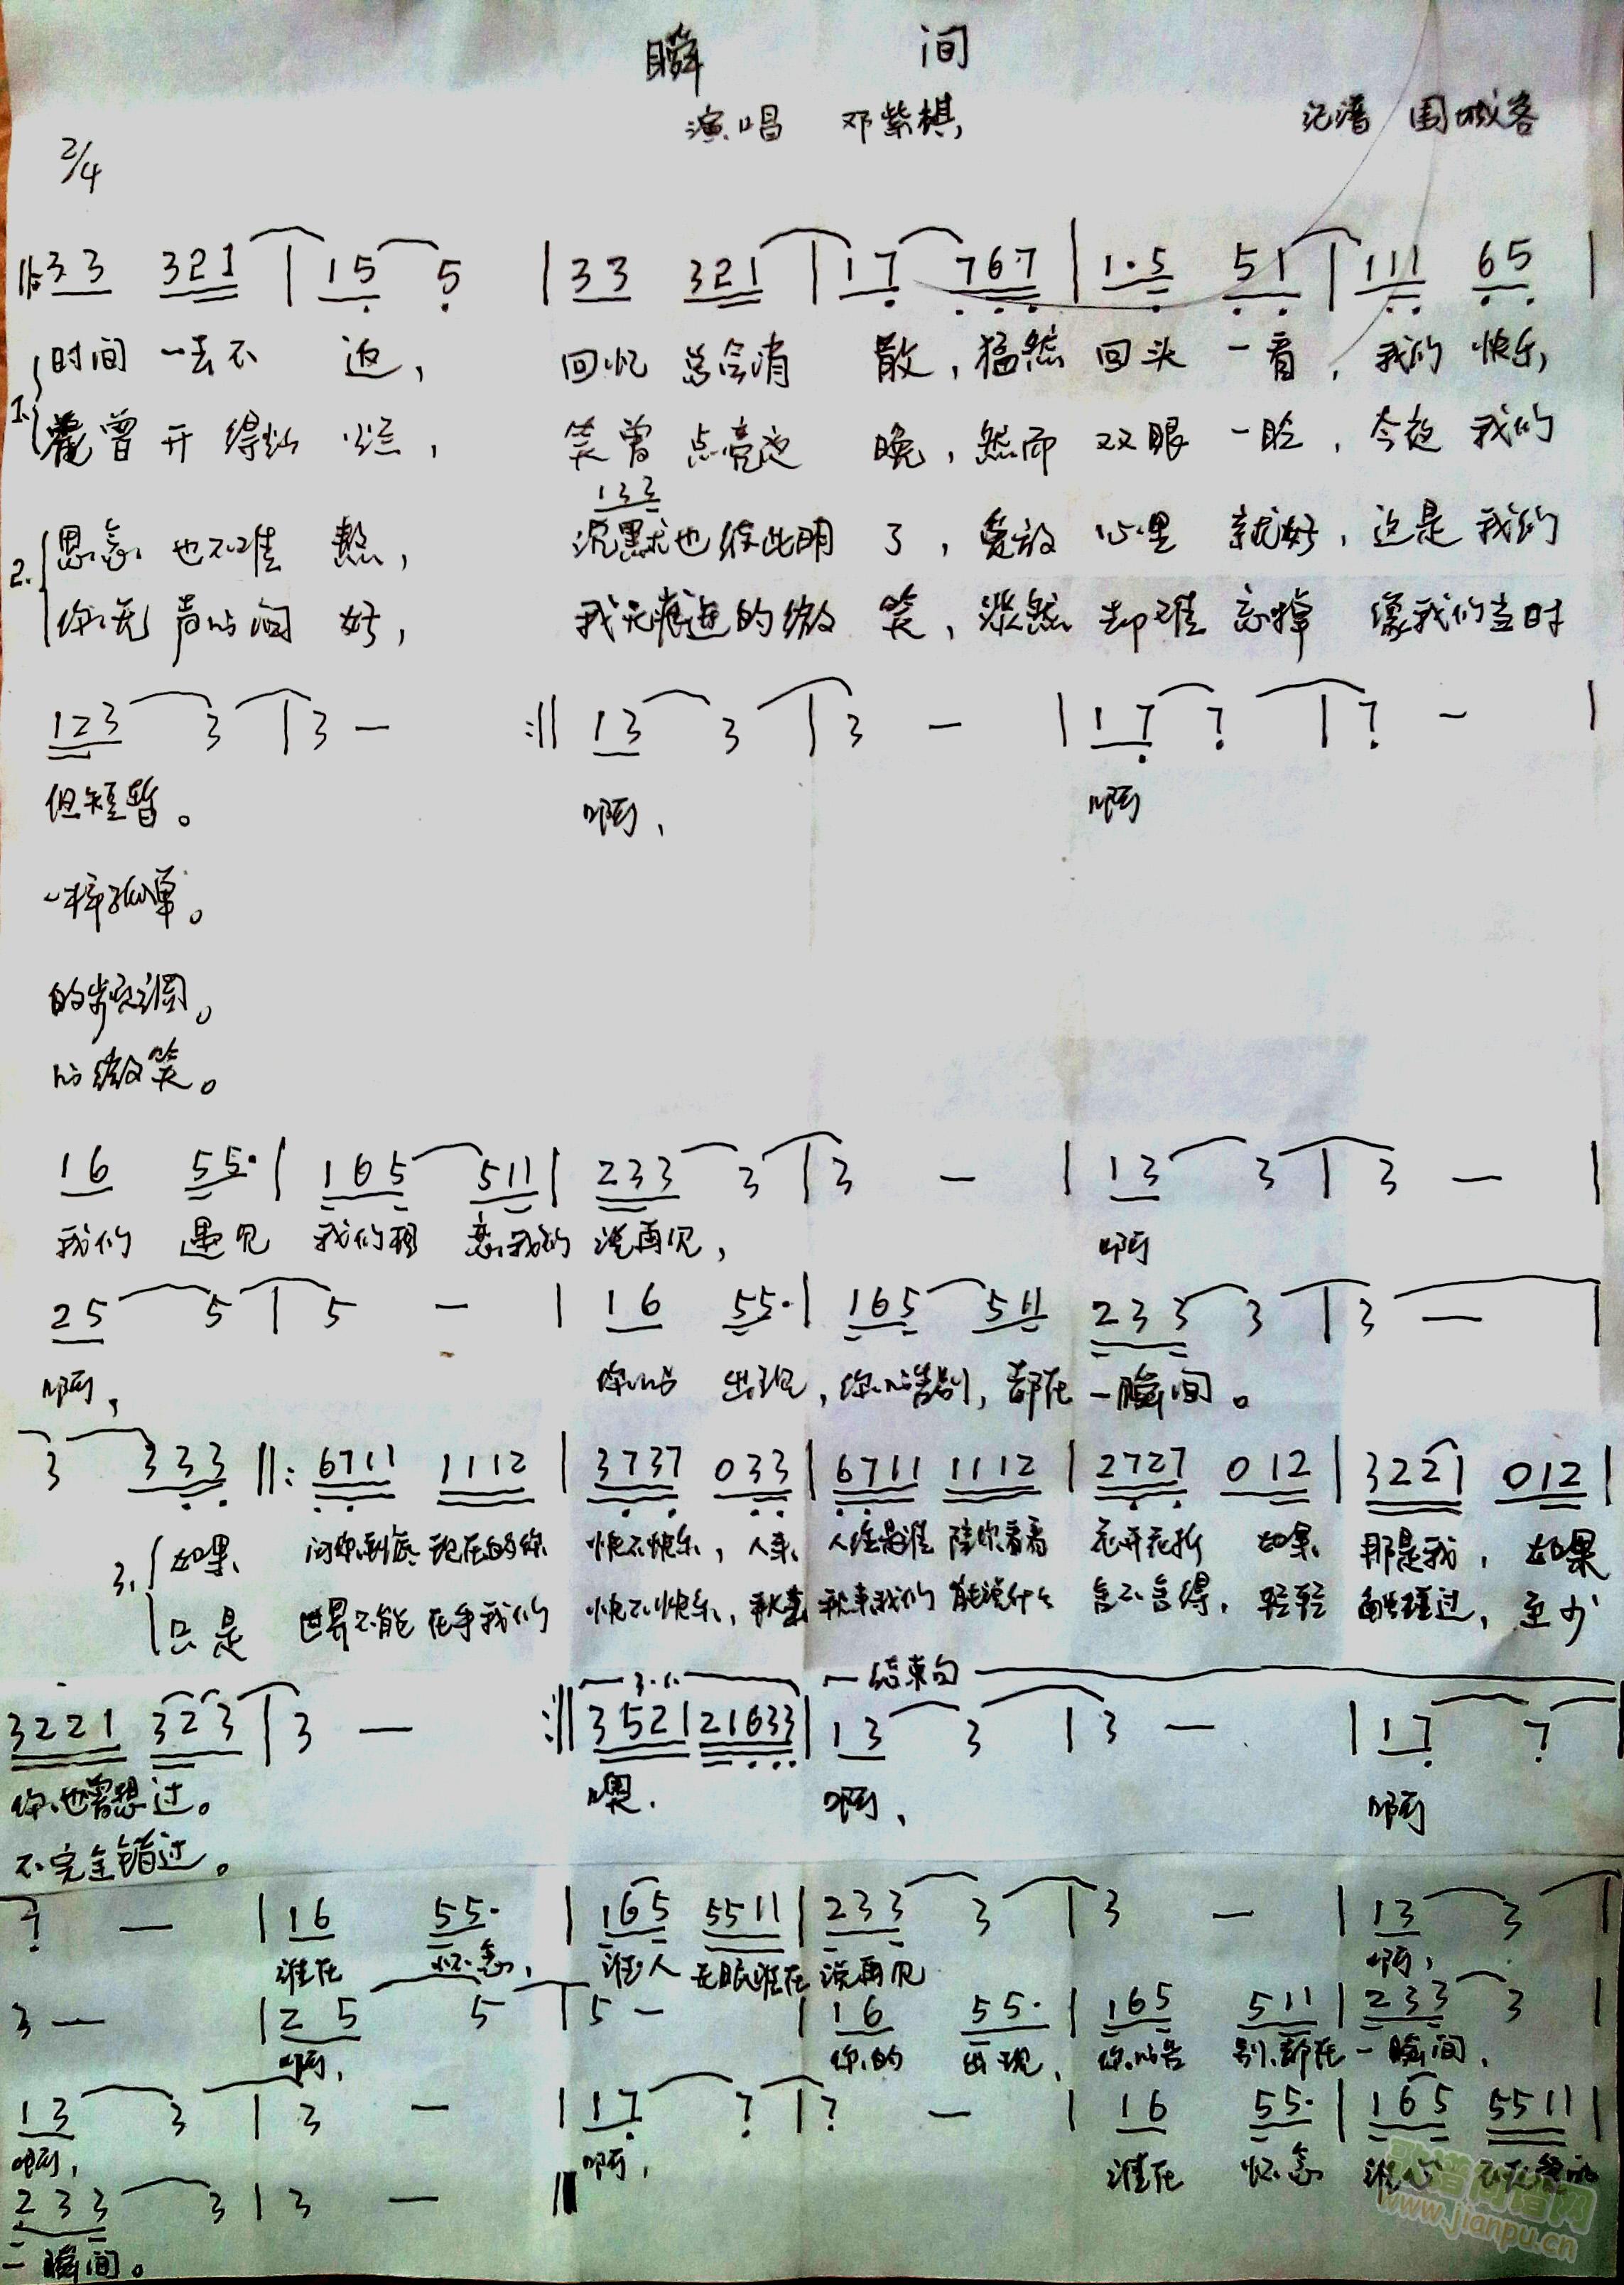 瞬 间
演唱 邓紫棋 记谱 围城客
2/4
||: 33 321 | 15 5 | 33 321 | 17 767 | 1·5 51 | 111 65 |
1. 时间 一去不 返, 回忆 总会消 散, 猛然 回头 一看, 我的 快乐,
曾 开 得灿 烂, 笑曾 点亮夜 晚, 然而 双眼 一眨, 今夜 我的
133
2. 思念 也不难 熬, 沉默也彼此明 了, 爱放 心里 就好, 这是 我的
你无 声的问 好, 我无痕迹的微 笑, 淡然 却难 忘掉 像我们当时
123 3 | 3 — :|| 13 3 | 3 — | 17 7 | 7 — |
但短暂。 啊, 啊
一样孤单。
的步调。
的微笑。
16 55· | 165 511 | 233 3 | 3 — | 13 3 | 3 — |
我们 遇见 我们相 恋我们 说再见, 啊
25 5 | 5 — | 16 55· | 165 511 233 3 | 3 — |
啊, 你的 出现, 你的告别, 都在 一瞬间。
3 333 ||: 6711 1112 | 3737 033 | 6711 1112 | 2727 012 | 3221 012 |
3. 如果 问你到底 现在的你 快不快乐, 人来 人往是谁 陪你看看 花开花折 如果 那是我, 如果
只是 世界不能 在乎我们 快不快乐, 秋来我们 能说什么 舍不舍得, 轻轻 过, 至少
3221 323 | 3 — :|| 3521 21633 | 13 3 | 3 — | 17 7 |
结束句
你也曾想过。 噢. 啊, 啊
不完全错过。
7 — | 16 55· | 165 5511 | 233 3 | 3 — | 13 3 |
谁在 怀念, 谁人 无眠谁在 说再见 啊,
3 — | 25 5 | 5 — | 16 55· | 165 511 | 233 3 |
啊, 你的 出现, 你的告 别,都在 一瞬间,
13 3 | 3 — | 17 7 | 7 — | 16 55· | 165 5511 |
啊, 啊, 谁在 怀念
233 3 | 3 — ||
一瞬间。
歌谱简谱网
www.jianpu.cn